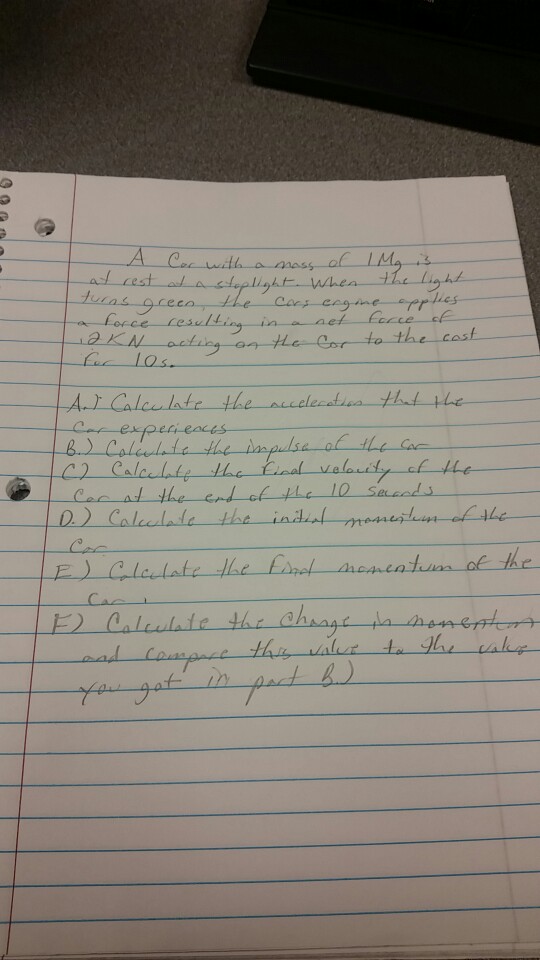 A Car with a mass of 1Mg is
at rest at a stoplight. When the light
turns green, the cars engine applies
a force resulting in a net force of
.2 KN acting on the Car to the east
for 10s.
A.) Calculate the acceleration that the
Car experiences
B.) Calculate the impulse of the car
C) Calculate the final velocity of the
Car at the end of the 10 seconds
D.) Calculate the initial momentum of the
Car
E) Calculate the final momentum of the
Car.
F) Calculate the change in momentum
and compare this value to the value
you got in part B.)